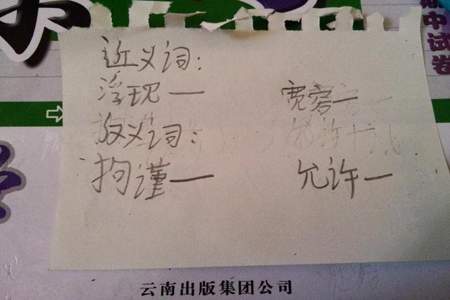 近义词：
浮现— 宽容—
反义词：
拘谨— 允许—
云南出版集团公司
中试卷